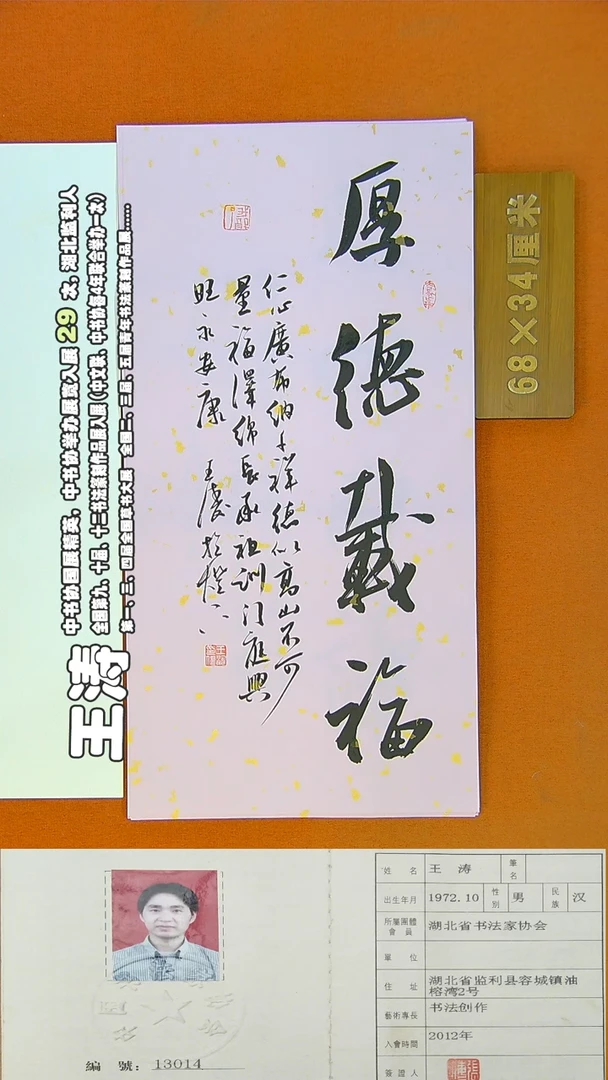 厚德載福
仁心廣布納千祥德似高山不可
量福澤綿長承祖訓門庭興
旺永安康 王濤於
68×34厘米
王涛
中书协国展精英、中书协举办展赛入展29次,湖北监利人
全国第九、十届、十二书法篆刻作品展入展(中文联、中书协每4年联合举办一次)
姓名 王涛 筆名
出生年月 1972.10 性别 男 民族 汉
所屬團體會員 湖北省书法家协会
單位
住址 湖北省监利县容城镇油榕湾2号
藝術專長 书法创作
入會時間 2012年
簽證人
編號: 13014